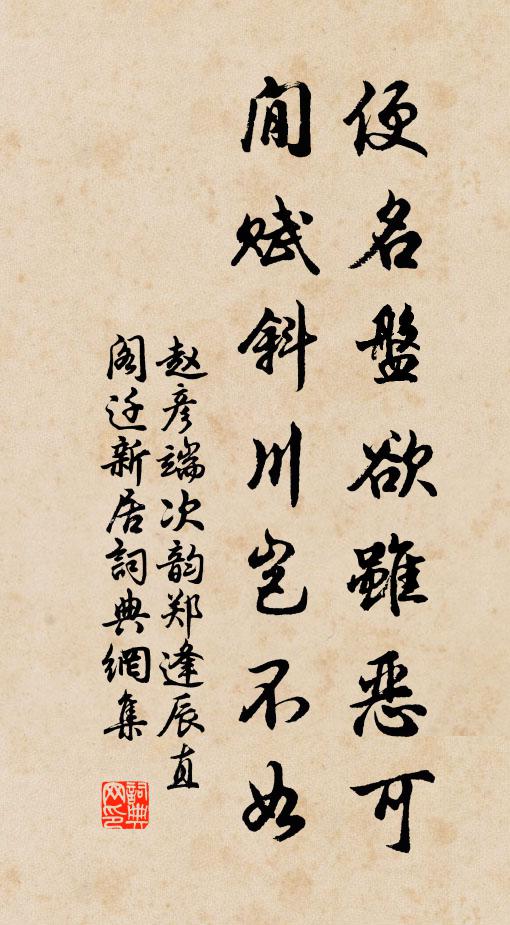 便名盤欲雖恶可
閒赋斜川岂不如
赵彦端次韵郑逢辰直
阁迁新居詞典網集
詞典
网印